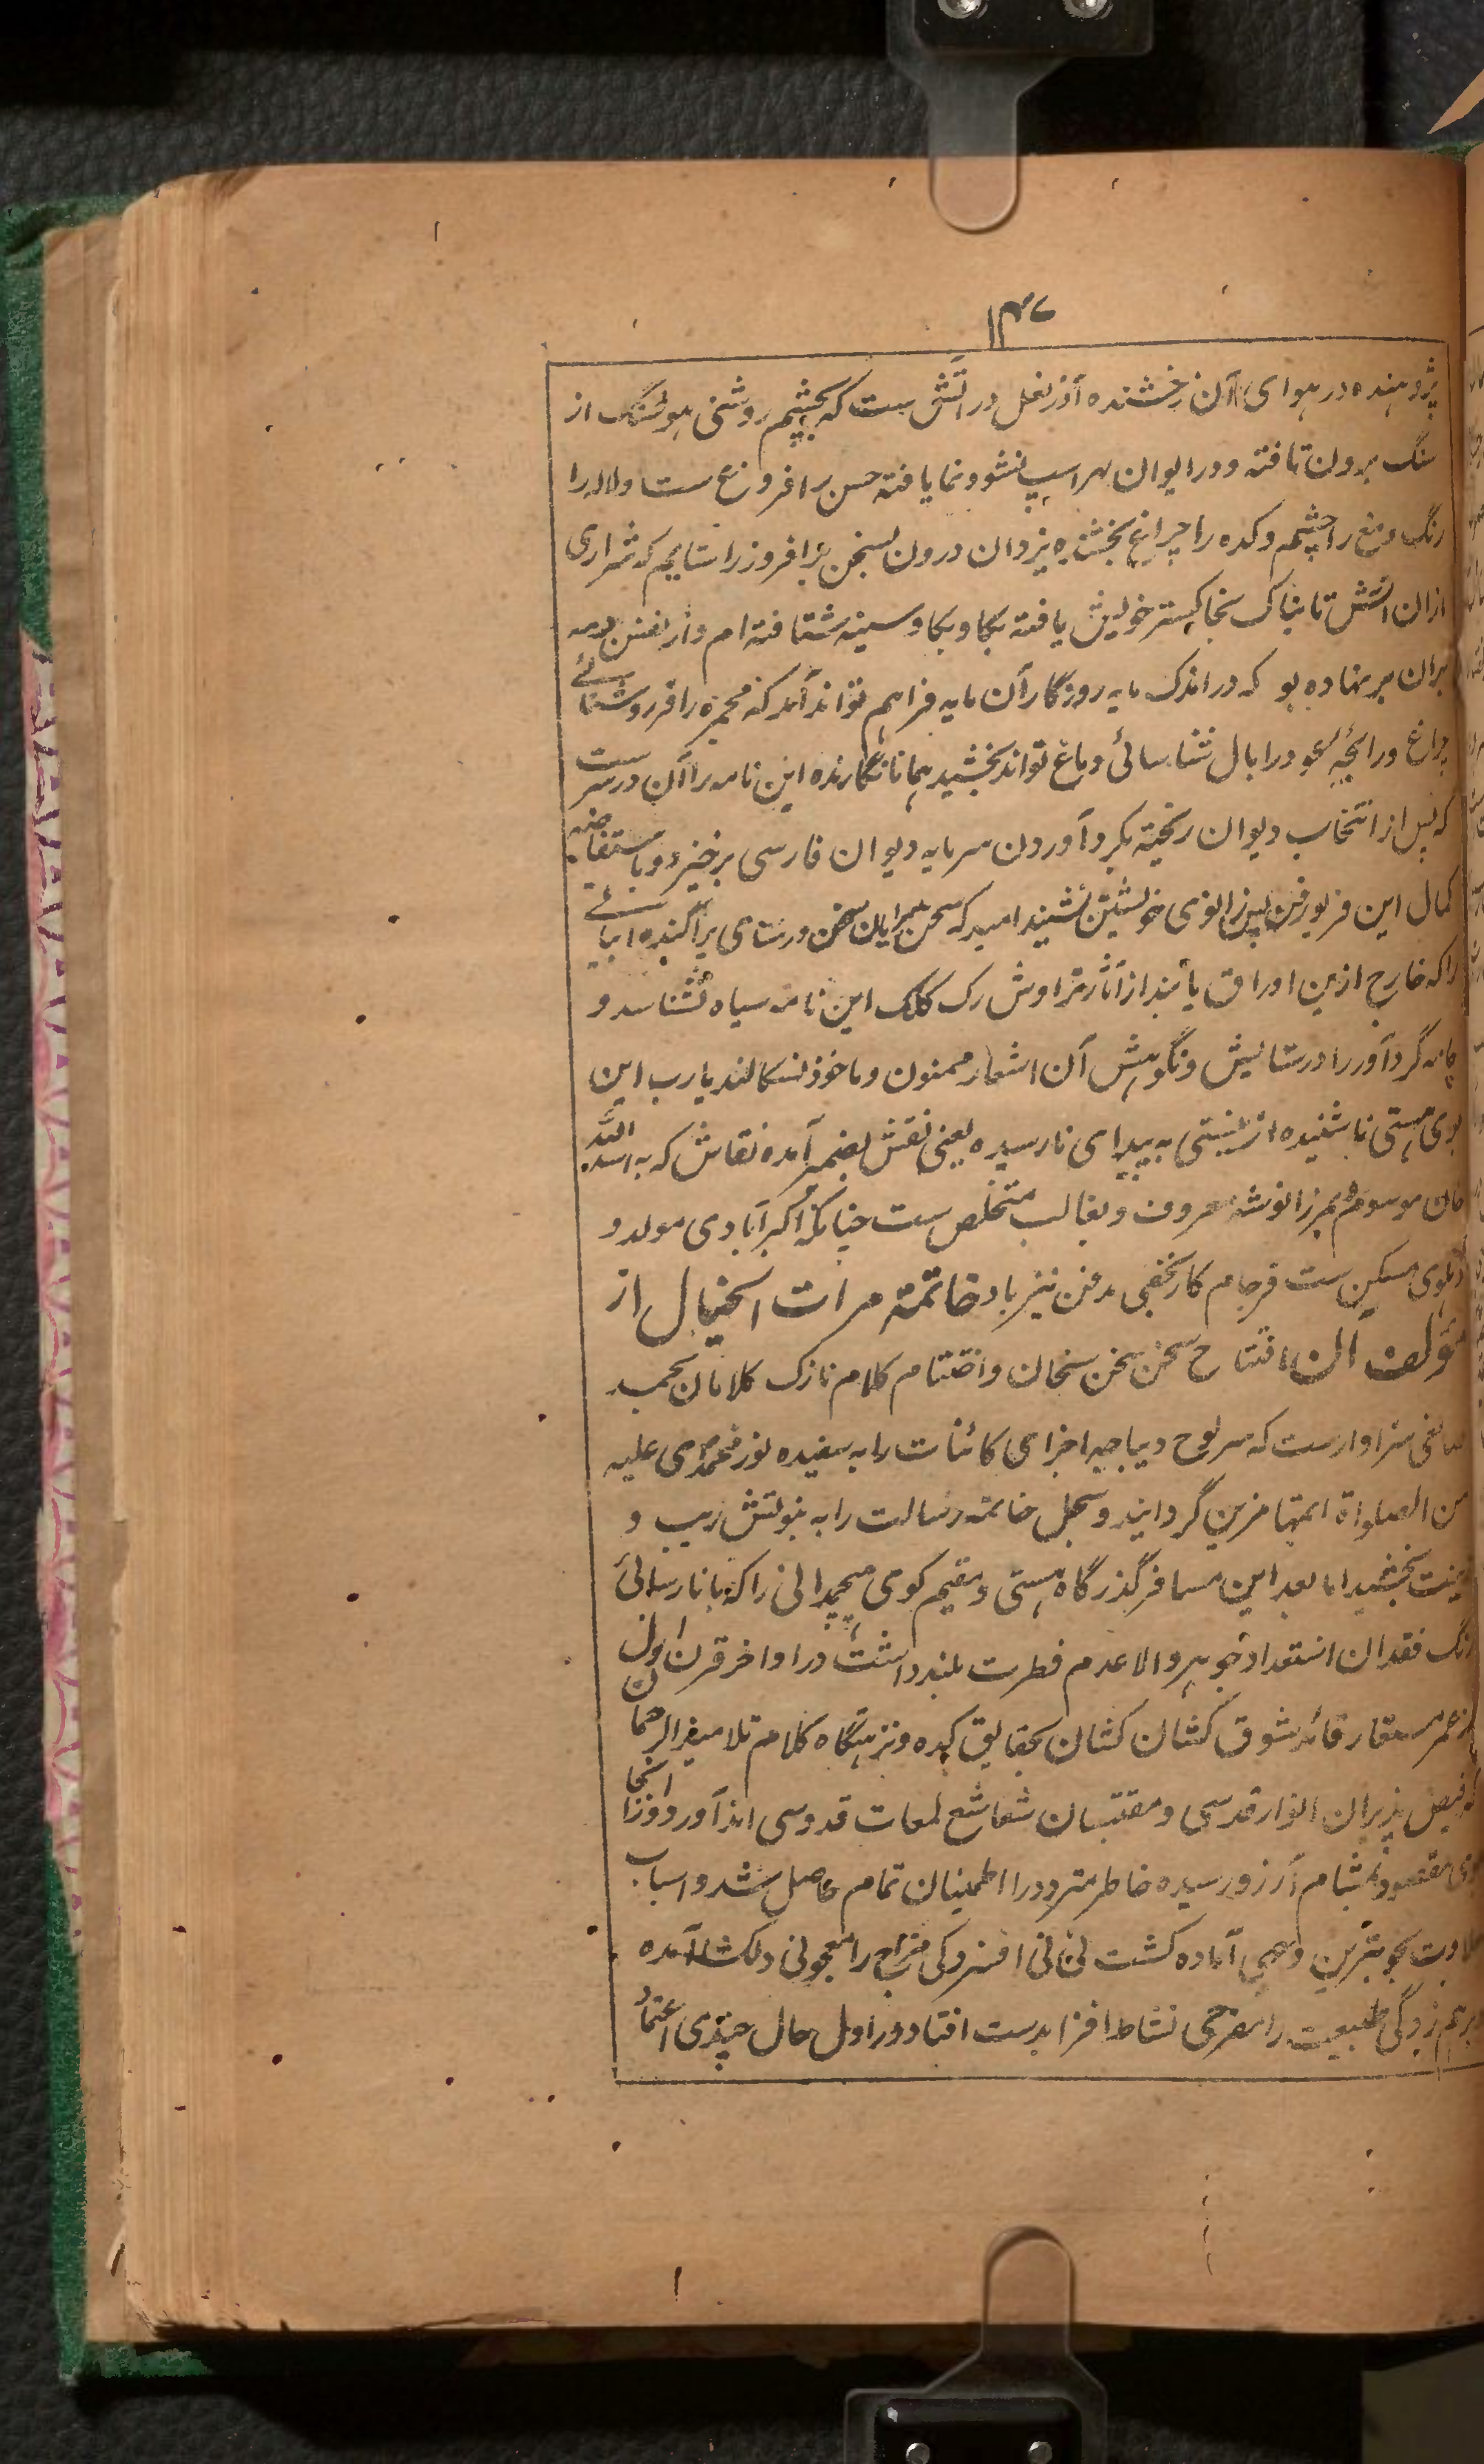 ۱۴۷
پژوهنده در هوای آن رخشنده آذر نعل در آتش ست که بچشم روشنی هوشنگ از
سنگ برون تافته و در ایوان لهراسپ نشو و نما یافته خس را فروغ ست و لاله را
رنگ و مغ را چشم و کده را چراغ بخشنده یزدان درون بسخن برافروز را سپاسم که شراری
ازان آتش تابناک بخاکستر خویش یافته بکاو کاو سینه شتافته ام و از نفس دمه
بران بر نهاده بو که در اندک مایه روزگار آن مایه فراهم تواند آمد که مجمره را فر روشنائے
چراغ و رایحه عود را بال شناسائی دماغ تواند بخشید همانا نگارنده این نامه را آن در سر ست
که پس از انتخاب دیوان ریخته بگرد آوردن سرمایه دیوان فارسی برخیزد و باستفاضه
کمال این فریورفن پس زانوی خویشتن نشیند امید که سخن سرایان سخن ورستای پراگنده ابیاتے
را که خارج ازین اوراق یابند از آثار تراوش رگ کلک این نامه سیاه نشناسد و
چامه گرد آور را در ستایش و نگوهش آن اشعار ممنون و ماخوذ نسگالند یا رب این
بوی هستی ناشنیده از نیستی به پیدای نارسیده یعنی نقش بضمیر آمده نقاش که به اسد الله
خان موسوم و بمرزا نوشه معروف و بغالب متخلص ست چنانکه اکبرآبادی مولد و
دهلوی مسکن ست فرجام کار نجفی مدفن نیز باد خاتمه مرات الخیال از
مولف آن افتتاح سخن سخن سنجان و اختتام کلام نازک کلامان بحمد
صانعی سزاوارست که سرلوح دیباجه اجزای کائنات را به سفیده نور محمدی علیه
من الصلواة اتمها مزین گردانید و سجل خاتمه رسالت را به نبوتش زیب و
زینت بخشید اما بعد این مسافر گذرگاه هستی و مقیم کوی هیچمدانی را که با نارسائی
فقدان استعداد جوهر والا عدم فطرت بلند داشت در اواخر قرن اول
از عمر مستعار قائد شوق کشان کشان بحقایق کده و نزهتگاه کلام تلامیذ الرحمان
که فیض پذیران انوار قدسی و مقتبسان شعاشع لمعات قدوسی اند آورد و از انجا
بوی مقصود بمشام آرزو رسیده خاطر متردد را اطمینان تمام حاصل شد و اسباب
حلاوت بخوبترین وجهی آماده گشت فی فی افسردگی مزاج را معجونی دلکشا آمده
و برهم زدگی طبیعت را مفرحی نشاط افزا بدست افتاد و در اول حال چندی اعتماد